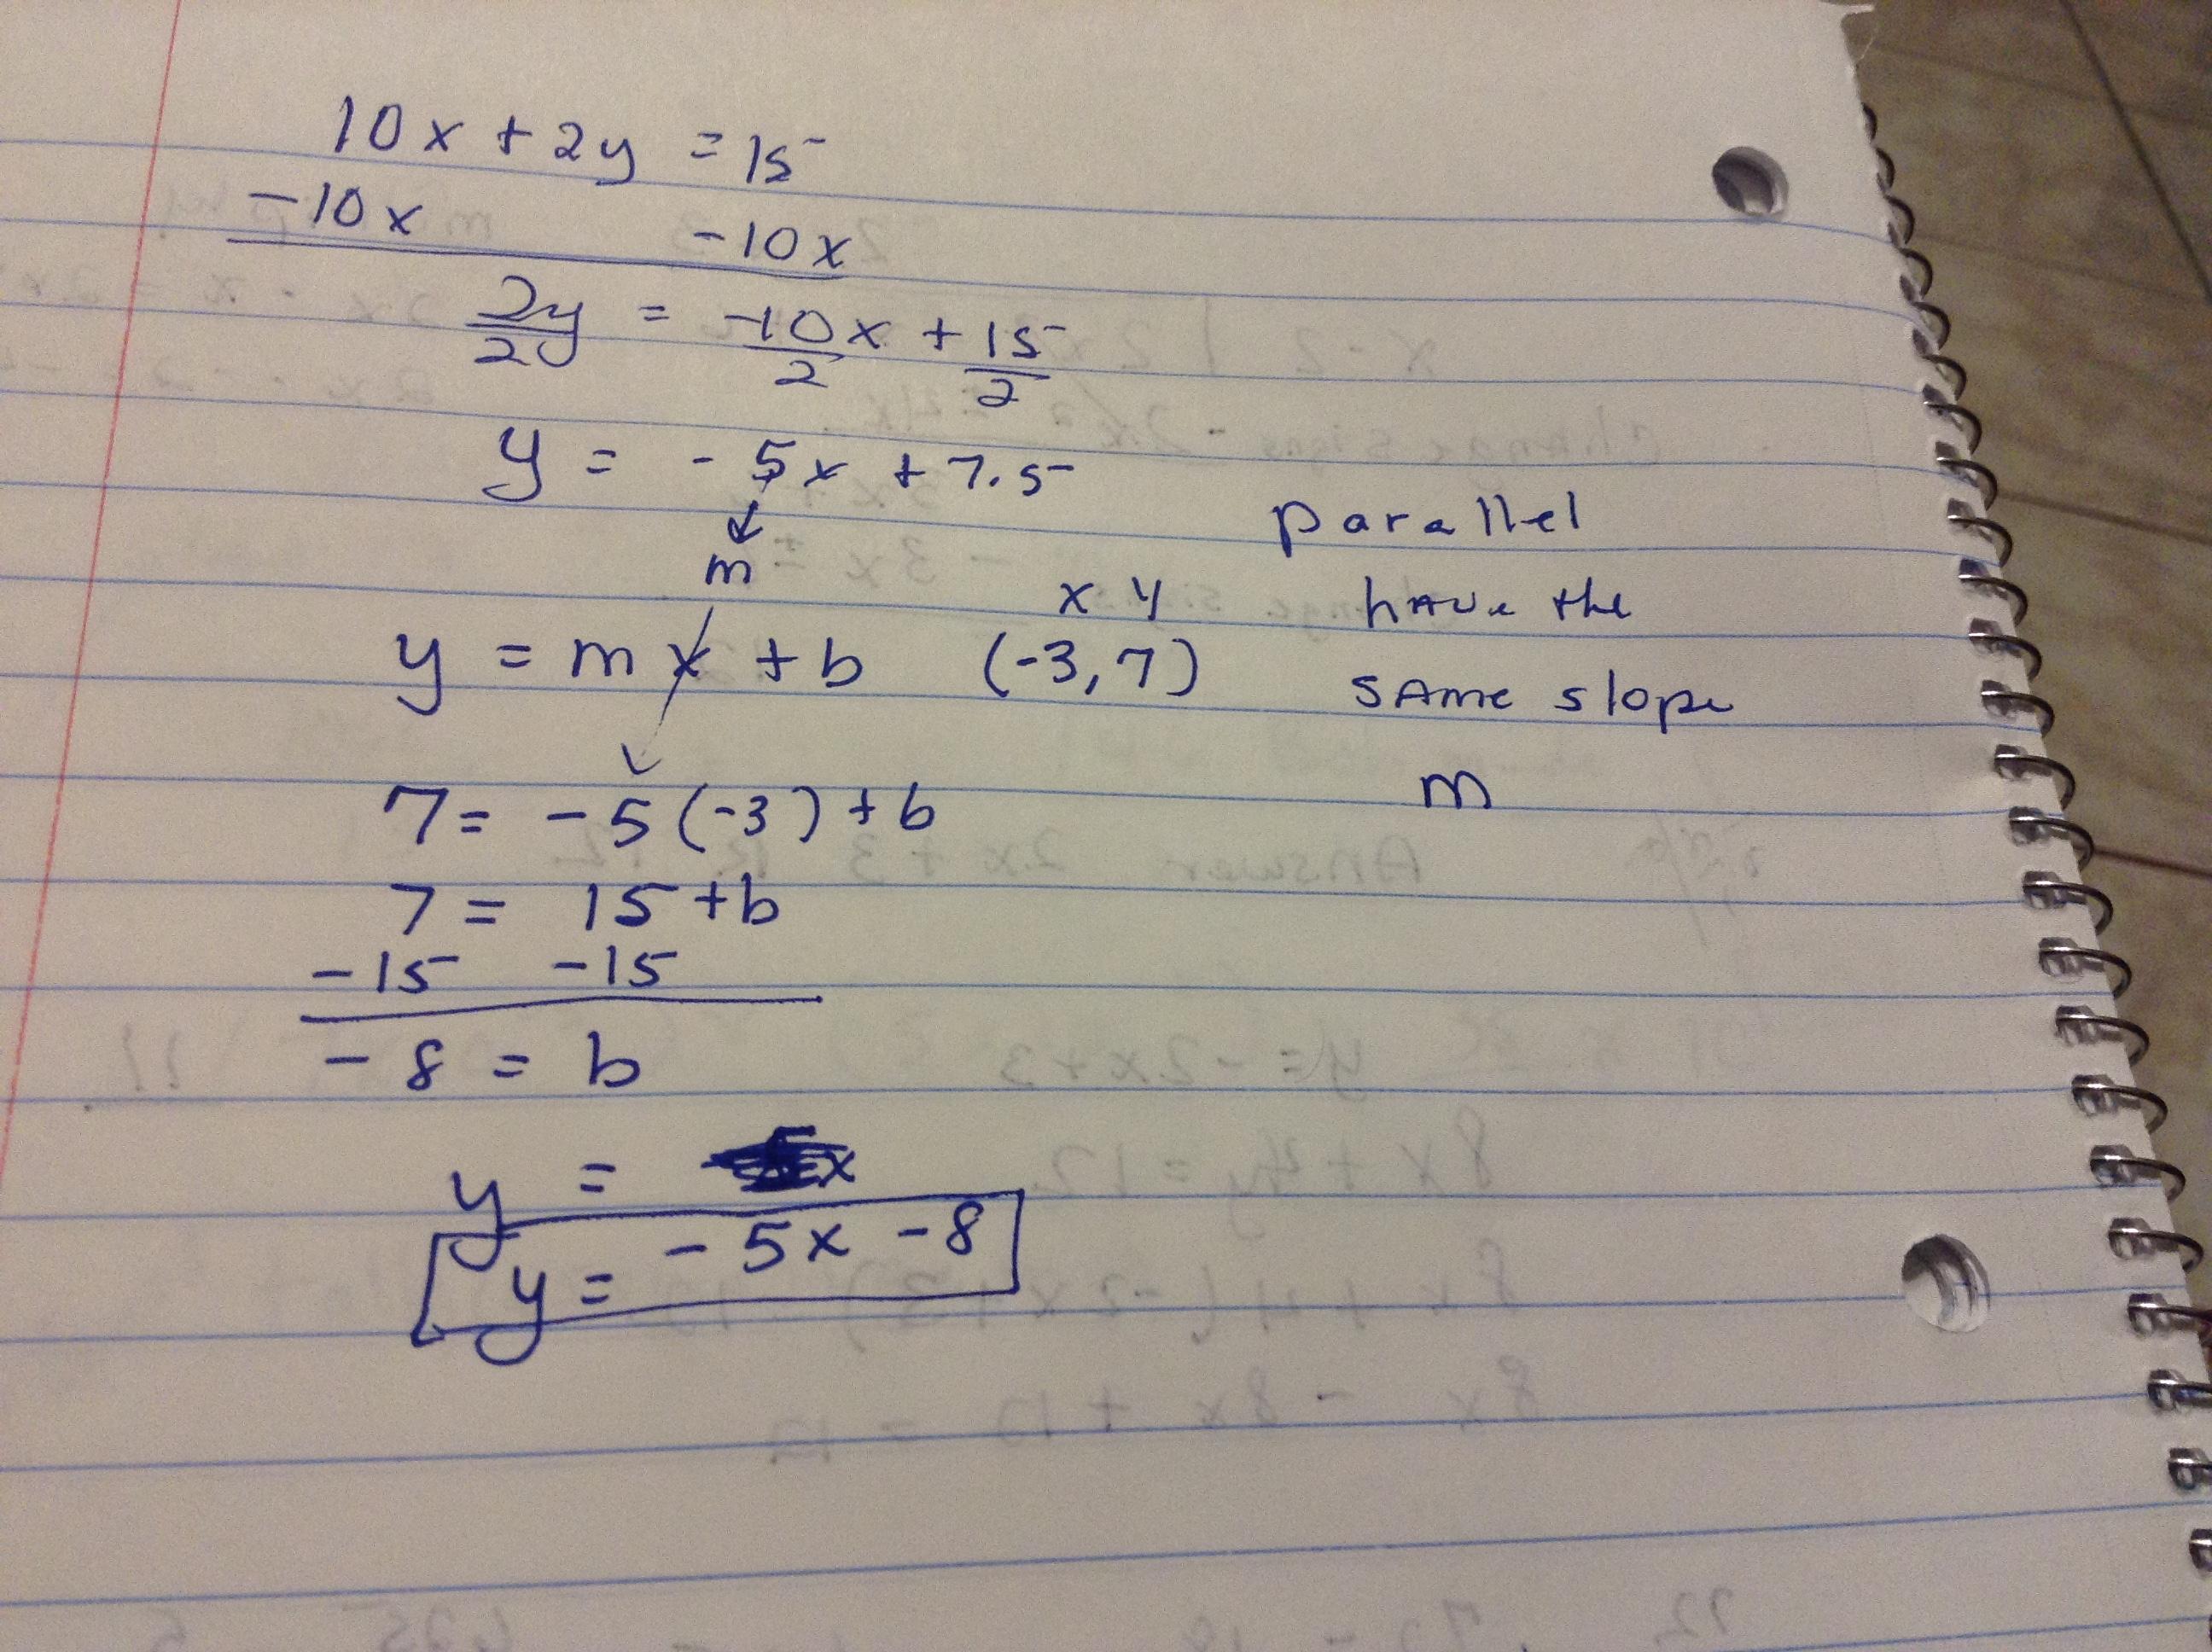 10x + 2y = 15
-10x -10x
2y/2 = -10x/2 + 15/2
y = -5x + 7.5
m
y = mx + b (-3,7)
x y
7 = -5(-3) + b
7 = 15 + b
-15 -15
-8 = b
y = x
y = -5x -8
parallel
have the
same slope
m